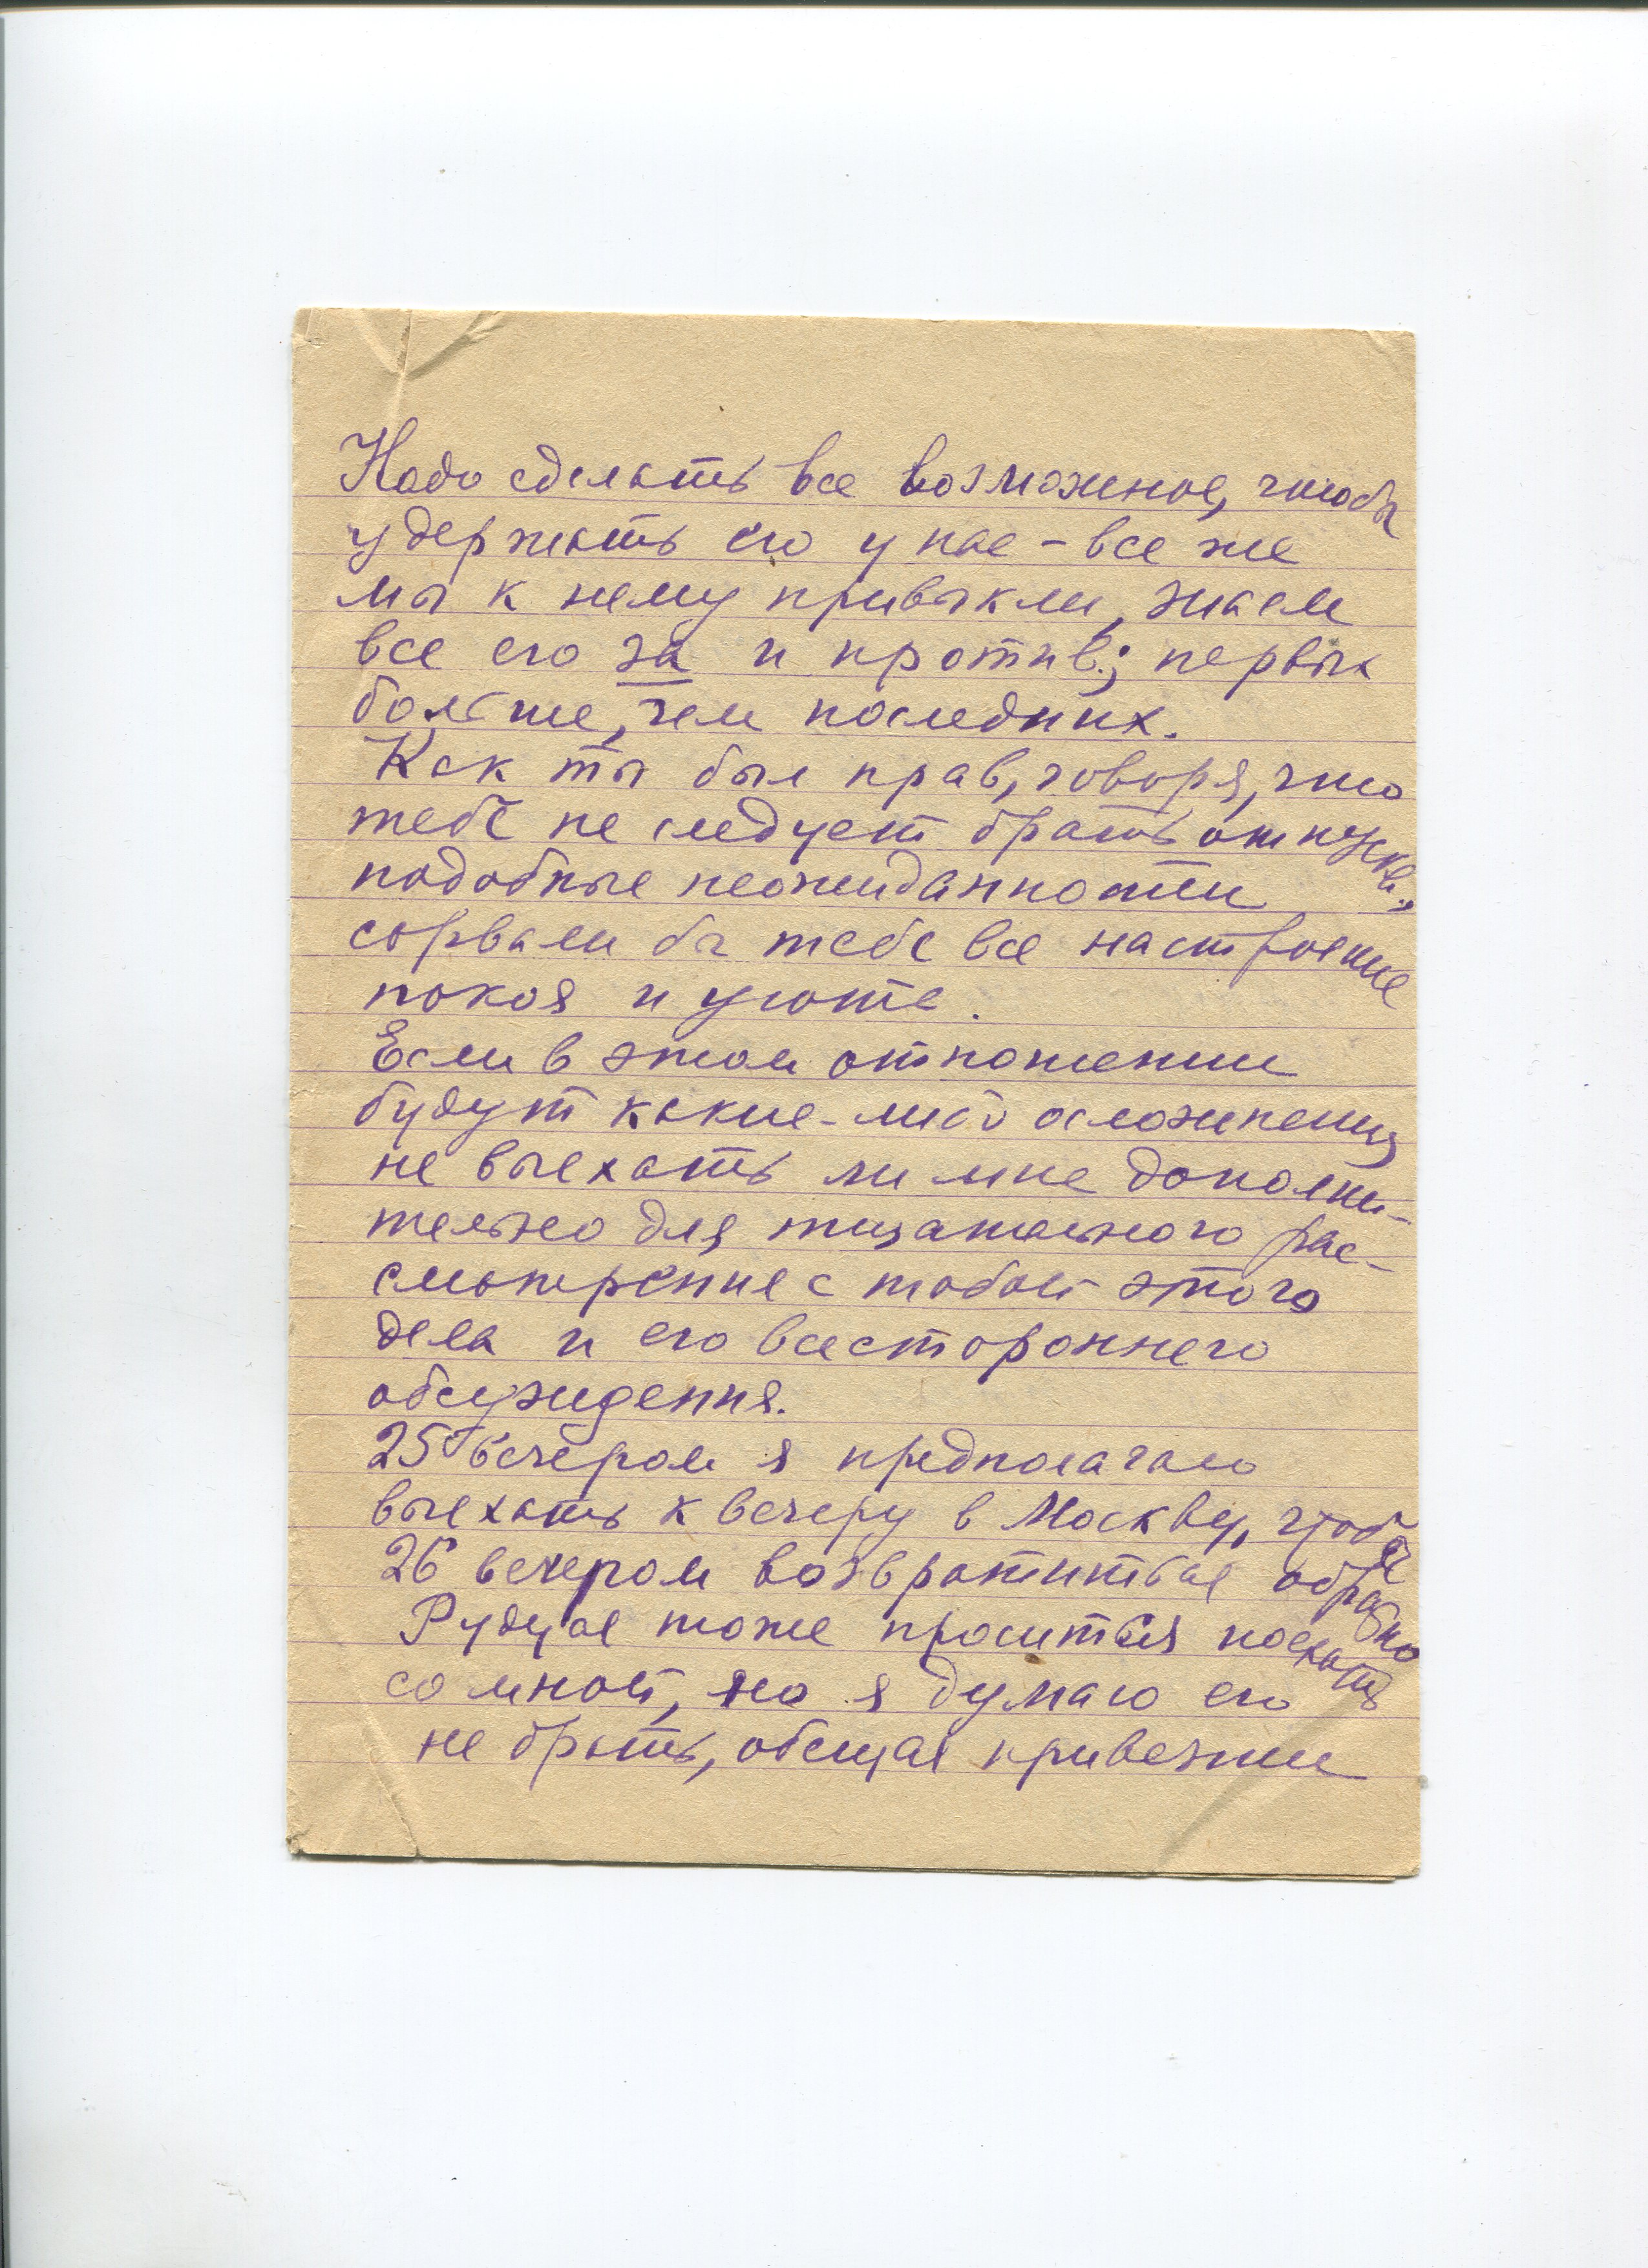 Надо сделать все возможное, чтобы
удержать его у нас – все же
мы к нему привыкли, знаем
все его за и против; первых
больше, чем последних.
Как ты был прав, говоря, что
тебе не следует брать отпуска,
подобные неожиданности
сорвали бы тебе все настроение
покоя и уюта.
Если в этом отношении
будут какие-либо осложнения
не выехать ли мне дополни-
тельно для тщательного рас-
смотрения с тобой этого
дела и его всестороннего
обсуждения.
25 вечером я предполагаю
выехать к вечеру в Москву, чтобы
26 вечером возвратиться обратно
тоже проситься поехать
со мной, но я думаю его
не брать, обещая привезти